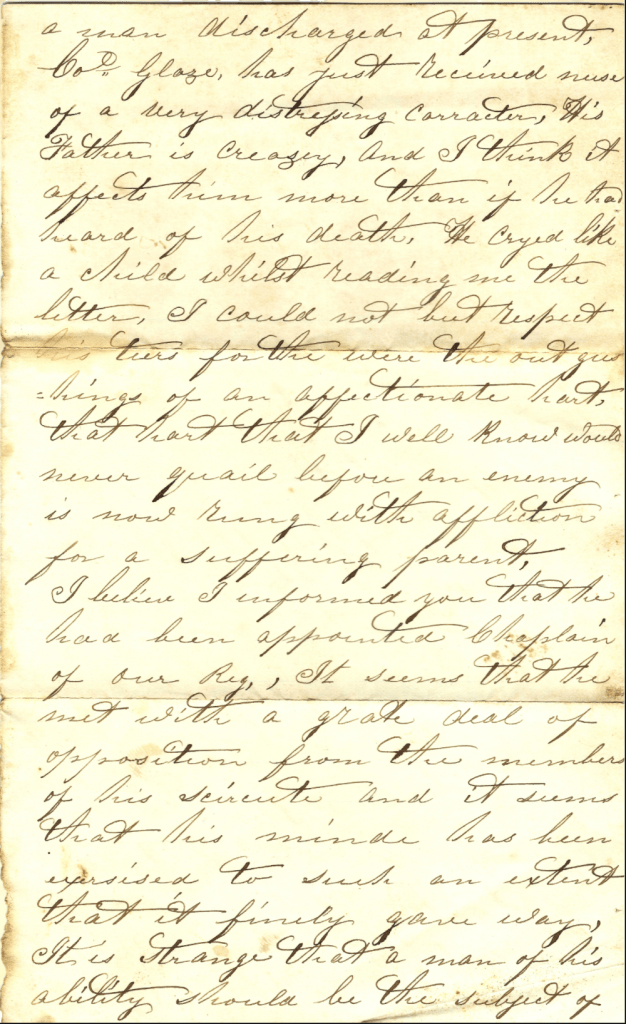 a man discharged at present,
Col. Glaze, has just received nuse
of a very distressing carracter, His
Father is Creazey, And I think it
affects him more than if he had
heard of his death, He cryed like
a child whilst reading me the
letter, I could not but respect
his ters for the were the out gus
=hings of an affectionate hart,
that hart that I well know would
never quail before an enemy
is now rung with affliction
for a suffering parent,
I believe I informed you that he
had been appointed Chaplain
of our Reg,, It seems that he
met with a grate deal of
opposition from the members
of his scircute and it seems
that his minde has been
exersised to such an extent
that it finely gave way,
It is strange that a man of his
ability should be the subject of